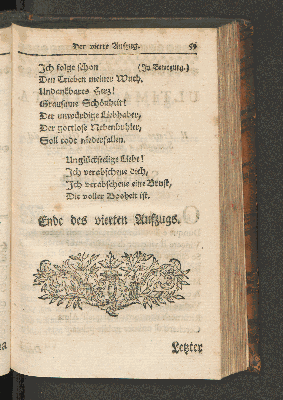 Der vierte Aufzug. 59
Ich folge schon (In Bewegung.)
Den Trieben meiner Wuth.
Undankbares Herz!
Grausame Schönheit!
Der unwürdige Liebhaber,
Der gottlose Nebenbuhler,
Soll todt niederfallen.
Unglückseelige Liebe!
Ich verabscheue dich,
Ich verabscheue eine Brust,
Die voller Boßheit ist.
Ende des vierten Aufzugs.
Letzter